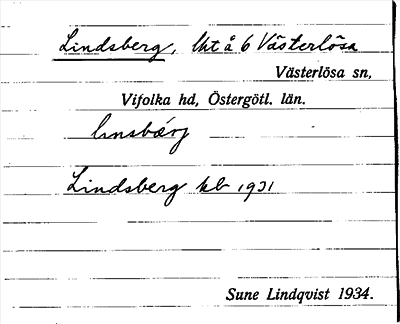 Lindsberg, lht å 6 Västerlösa
Västerlösa sn,
Vifolka hd, Östergötl. län.
linsbærj
Lindsberg kb 1931
Sune Lindqvist 1934.